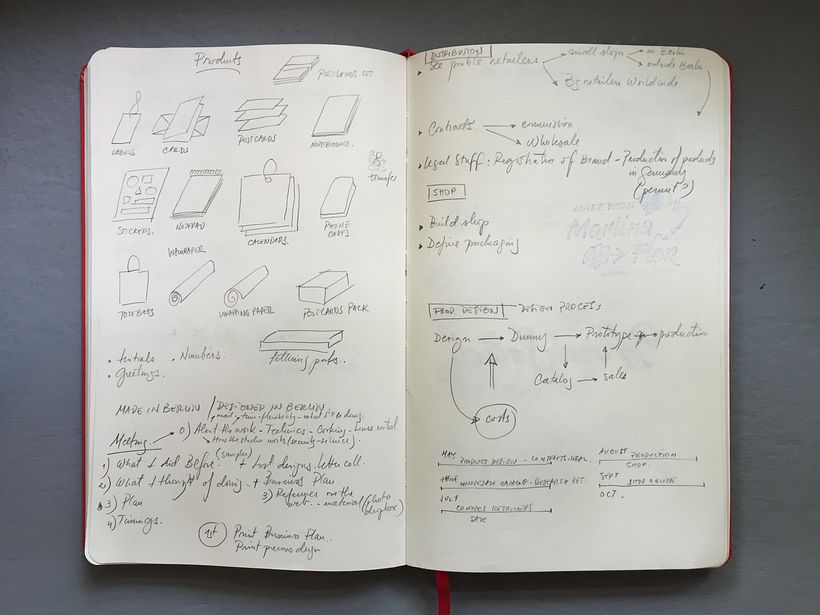 Products
POSTCARDS SET
LABELS
CARDS
POSTCARDS
NOTEBOOKS
transfer
STICKERS
NOTEPAD
CALENDARS
PHONE CASES
WALLPAPER
TOTEBAGS
WRAPPING PAPER
POSTCARDS PACK
Lettering parts.
• Initials • Numbers.
• Greetings.
MADE IN BERLIN / DESIGNED IN BERLIN
Meeting
0) About this work - Technics - Cooking - hours control
How the studio works (security - silence).
(samples)
1) What I did Before. + host designs. letter coll.
2) What I thought of doing + Business Plan
3) Plan.
3) References on the web - material (photo
4) Timings.
1st Print Business Plan.
Print previous design
DISTRIBUTION
See possible retailers
small shops
in Berlin
outside Berlin
Big retailers Worldwide
Contracts
commission.
Wholesale.
Legal Stuff: Registration of Brand - Production of products
in Germany
(permit?)
SHOP
Build shop
Define packaging
MADE WITH
Martina
Flor
PROD. DESIGN DESIGN PROCESS
Design Dummy Prototype production
Catalog sales
costs
MAY
PRODUCT DESIGN - CONTRACTS LEGAL.
AUGUST PRODUCTION
SHOP.
JUNE WHOLESALE CATALOG - RESEARCH RET.
SEPT SHOP ONLINE
JULY
OCT.
CONTACT RETAILERS